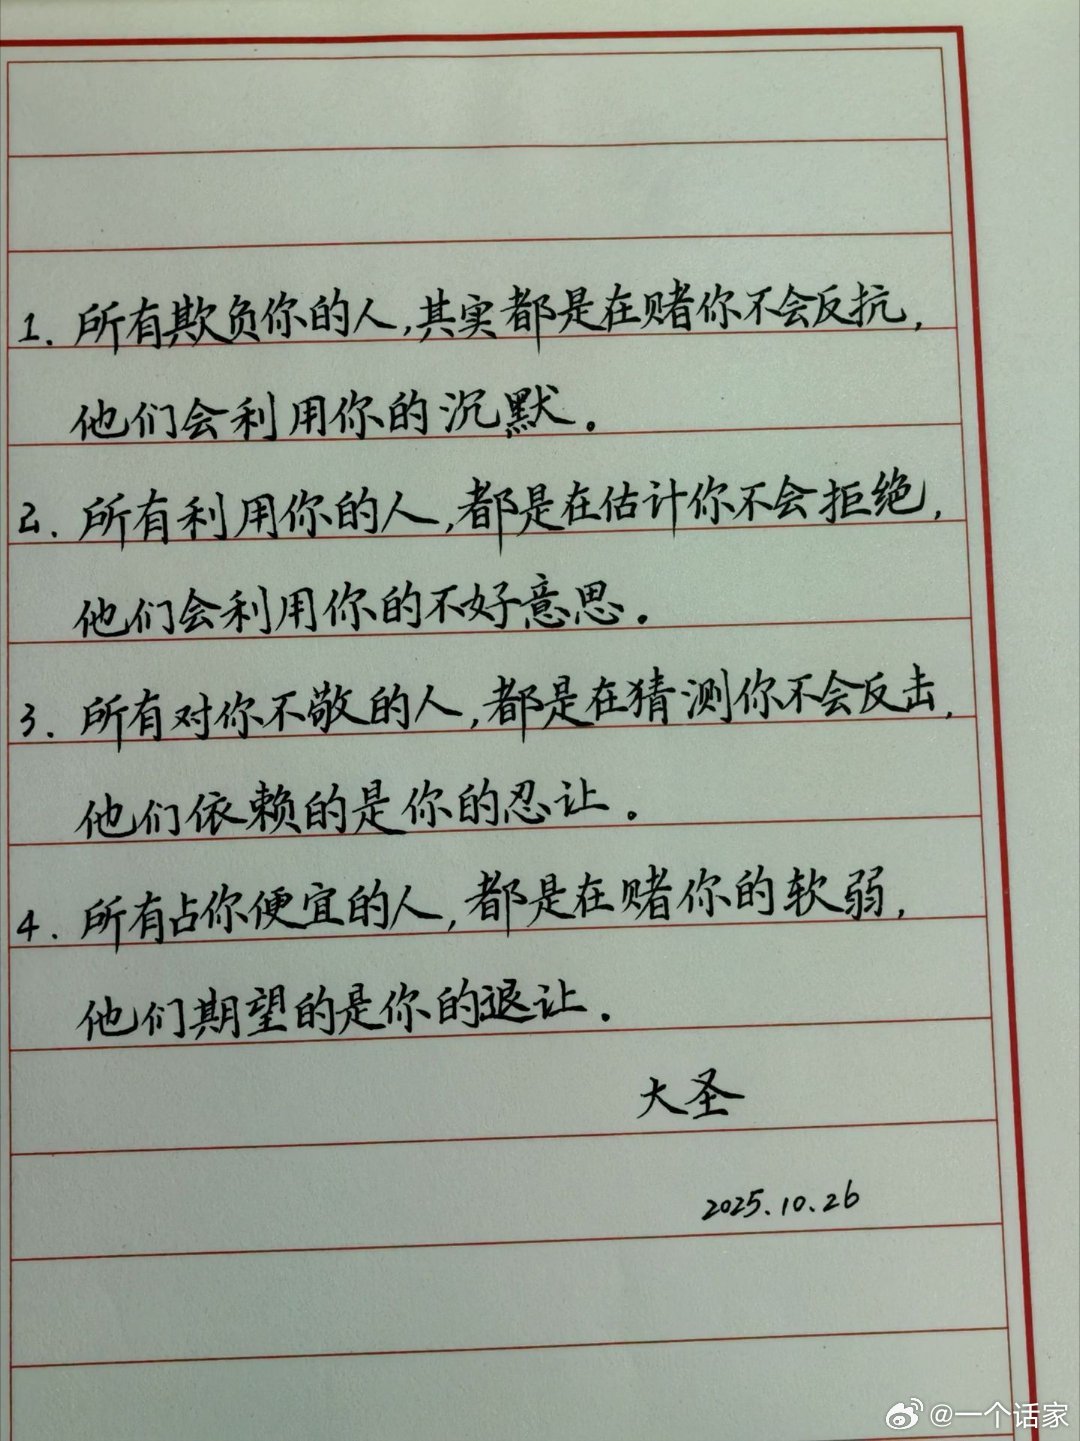 1. 所有欺负你的人,其实都是在赌你不会反抗,
他们会利用你的沉默。
2. 所有利用你的人,都是在估计你不会拒绝,
他们会利用你的不好意思。
3. 所有对你不敬的人,都是在猜测你不会反击,
他们依赖的是你的忍让。
4. 所有占你便宜的人,都是在赌你的软弱,
他们期望的是你的退让。
大圣
2025.10.26
@一个话家